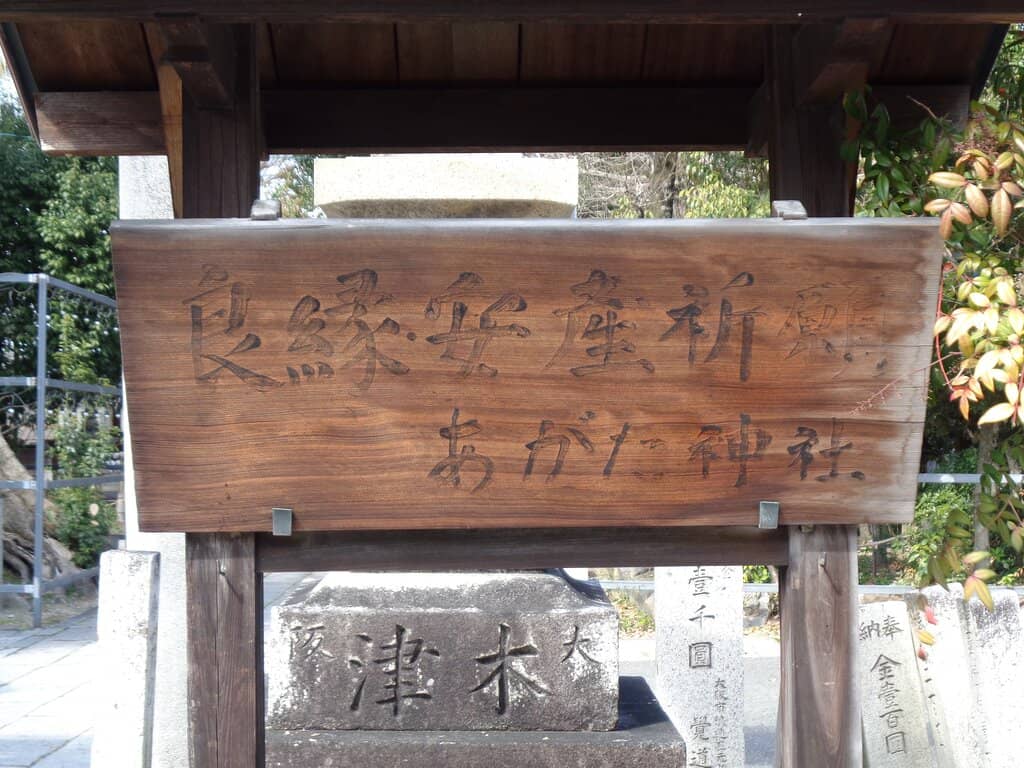 良縁・安産祈願
あがた神社
大木津阪
壹千圓
覺道
奉納
金壹百圓